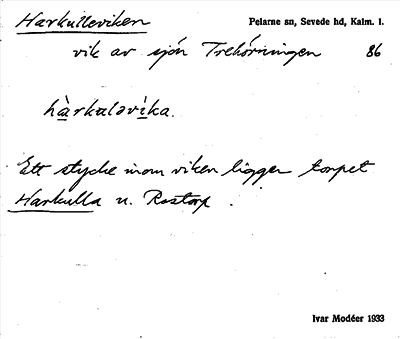 Harkulleviken Pelarne sn, Sevede hd, Kalm. l.
vik av sjön Trehörningen 86
hàrkuləvíka.
Ett stycke inom viken ligger torpet
Harkulla u. Rostorp.
Ivar Modéer 1933